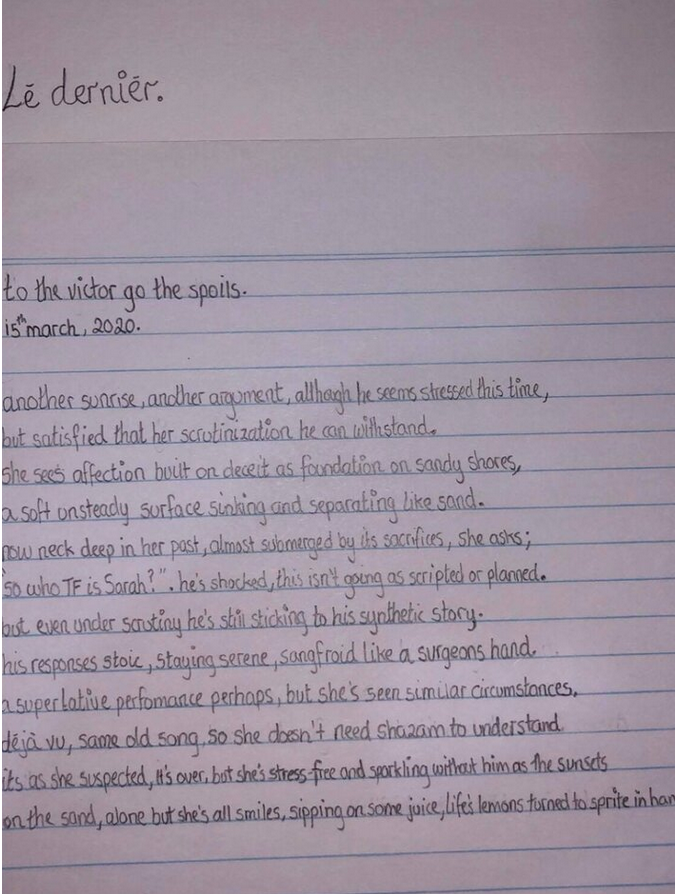 Lē derniēr.
to the victor go the spoils.
15th march, 2020.
another sunrise, another argument, although he seems stressed this time,
but satisfied that her scrutinization he can withstand.
she sees affection built on deceit as foundation on sandy shores,
a soft unsteady surface sinking and separating like sand.
now neck deep in her past, almost submerged by its sacrifices, she asks;
"so who TF is Sarah?". he's shocked, this isn't going as scripted or planned.
but even under scrutiny he's still sticking to his synthetic story.
his responses stoic, staying serene, sangfroid like a surgeons hand.
a superlative perfomance perhaps, but she's seen similar circumstances,
dējà vu, same old song, so she doesn't need shazam to understand
its as she suspected, it's over, but she's stress-free and sparkling without him as the sunsets
on the sand, alone but she's all smiles, sipping on some juice, life's lemons turned to sprite in han